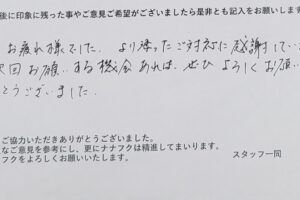 後に印象に残った事やご意見ご希望がございましたら是非とも記入をお願いします
お疲れ様でした. より添ったご対応に感謝してい
回お願いする機会あれば、ぜひよろしくお願い
とうございました.
ご協力いただきありがとうございました。
なご意見を参考にし、更にナナフクは精進してまいります。
フクをよろしくお願いいたします。
スタッフ一同